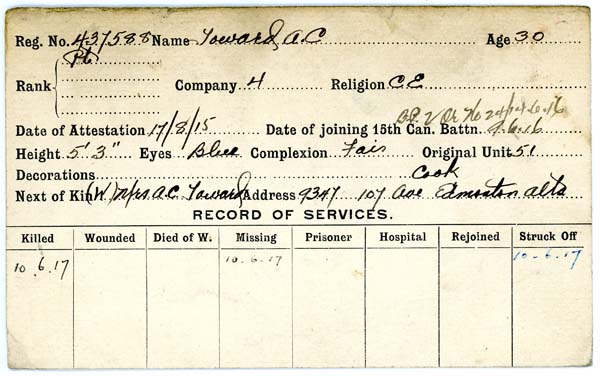 Reg. No. 437588 Name Toward, A.C Age 30
Rank Pte. Company 4 Religion C.E
Pt. 2 Or No 24/14-6-16
Date of Attestation 17/8/15 Date of joining 15th Can. Battn. 9.6.16
Height 5' 3" Eyes Blue Complexion Fair Original Unit 51
Decorations Cook
Next of Kin (W) Mrs A.C. Toward Address 9347 107 Ave Edmonton Alta
RECORD OF SERVICES.
Killed Wounded Died of W. Missing Prisoner Hospital Rejoined Struck Off
10.6.17 10.6.17 10-6-17